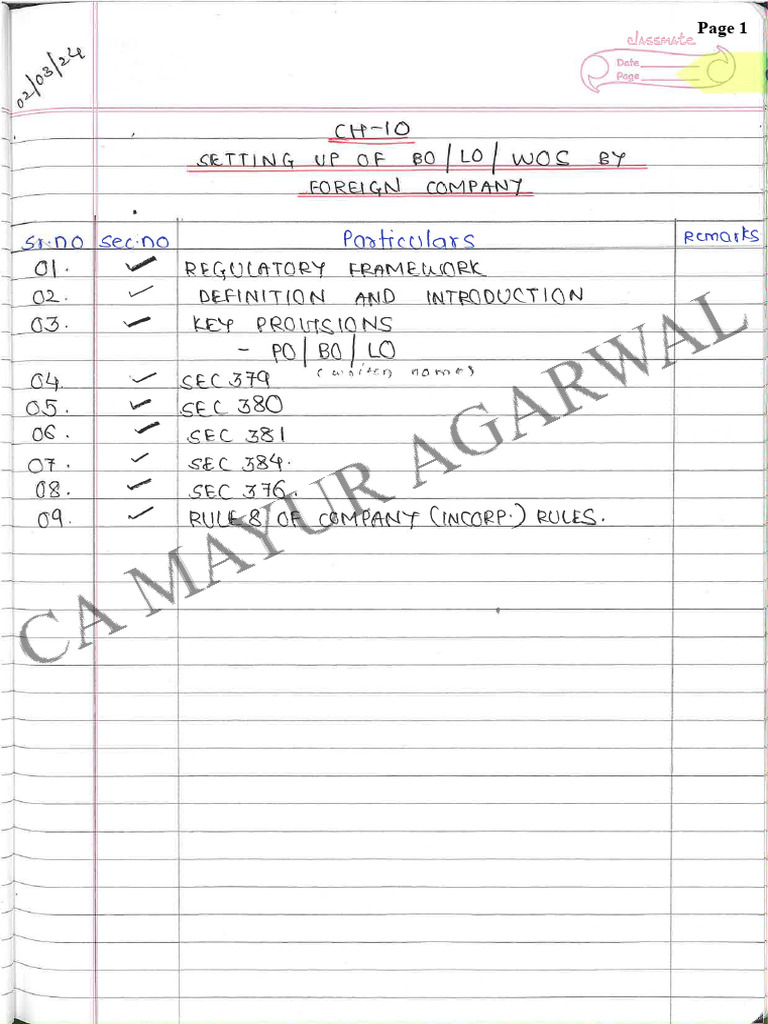 Page 1
classmate
Date
Page
02/03/24
CH-10
SETTING UP OF BO/LO/WOS BY
FOREIGN COMPANY
Sr.no Sec.no Particulars Remarks
01. ✓ REGULATORY FRAMEWORK
02. ✓ DEFINITION AND INTRODUCTION
03. ✓ KEY PROVISIONS
- PO/BO/LO
(written names)
04. ✓ SEC 379
05. ✓ SEC 380
06. ✓ SEC 381
07. ✓ SEC 384.
08. ✓ SEC 376.
09. ✓ RULE 8 OF COMPANY (INCORP.) RULES.
CA MAYUR AGARWAL